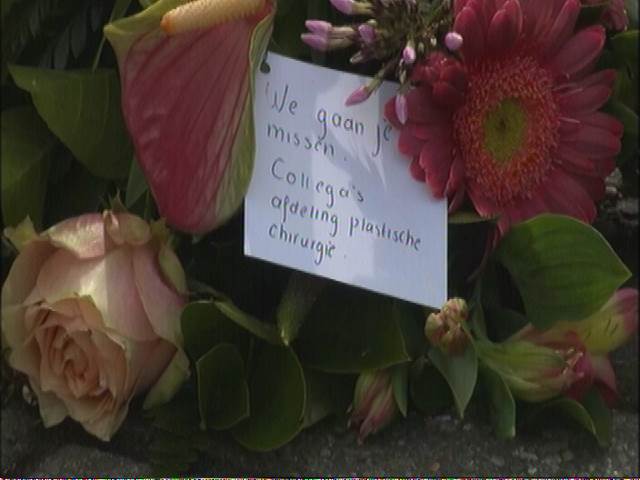 We gaan je
missen.
Collega's
afdeling plastische
chirurgie.